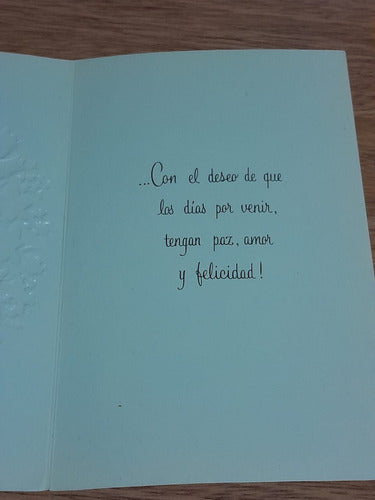 ...Con el deseo de que
los días por venir,
tengan paz, amor
y felicidad!